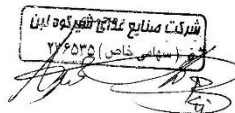 شرکت صنایع غذائی شهرکود لبن
( سهامی خاص ) ۲۳۶۵۳۵